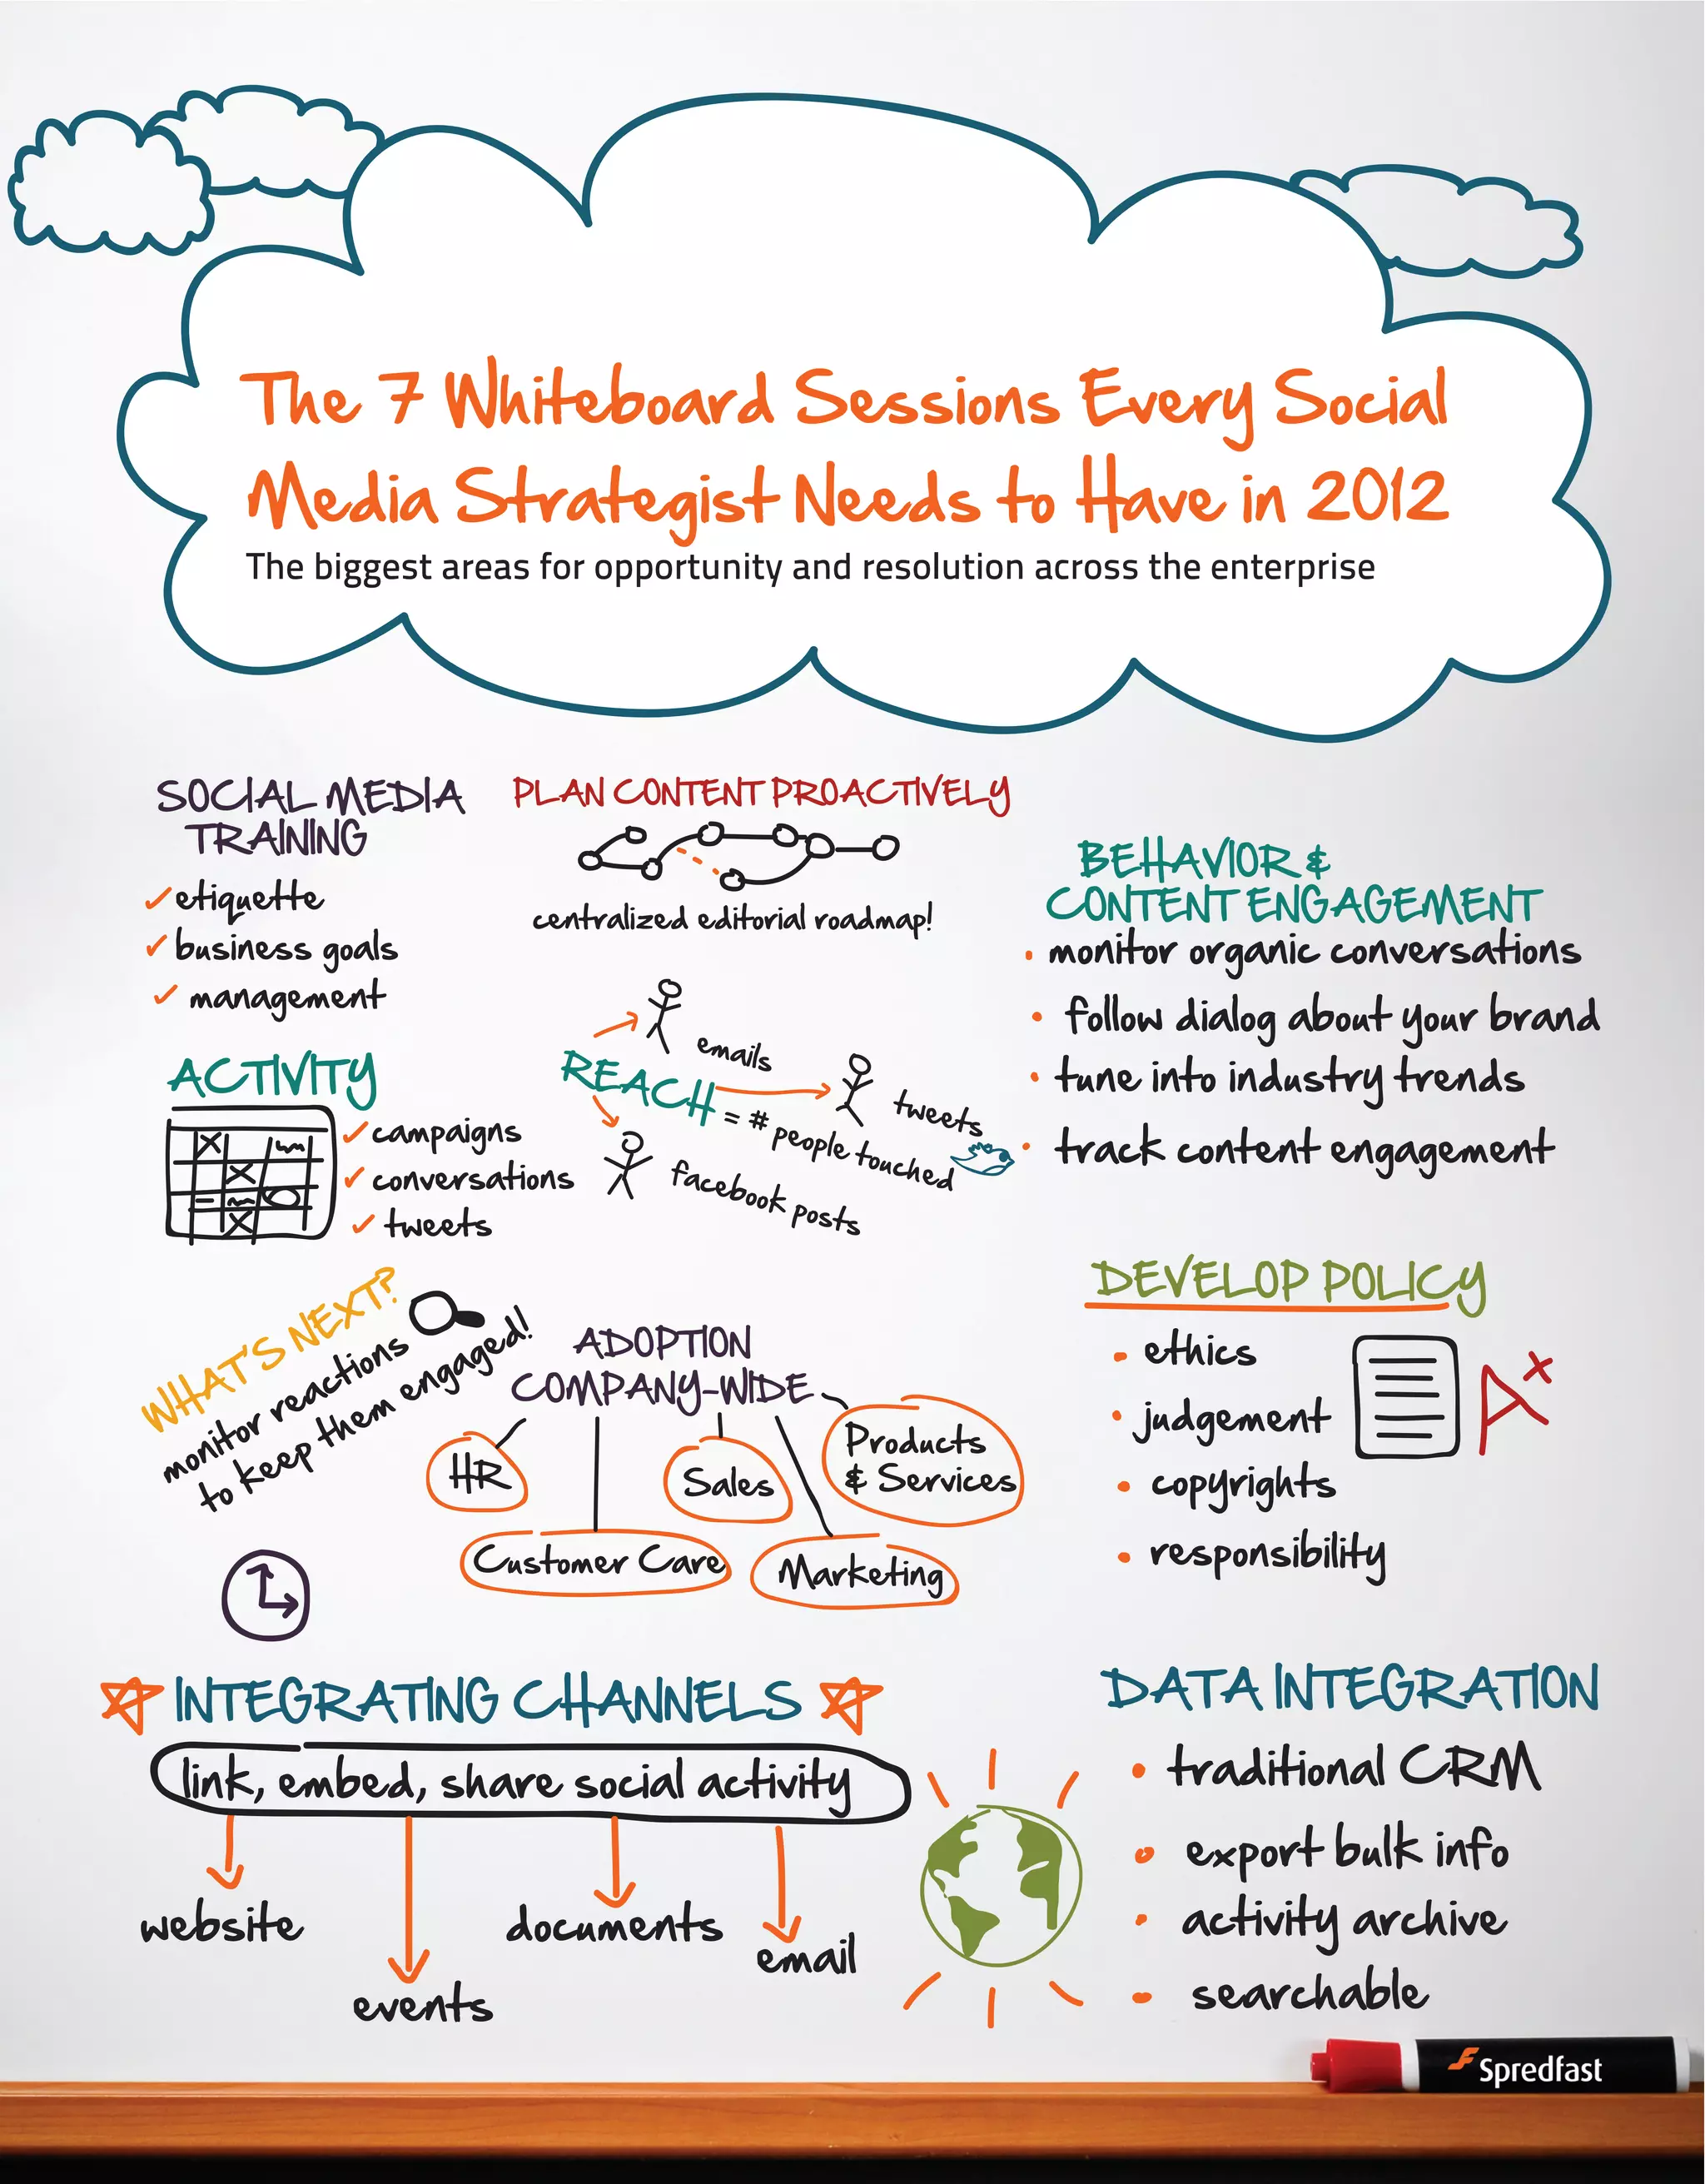 The 7 Whiteboard Sessions Every Social
Media Strategist Needs to Have in 2012
The biggest areas for opportunity and resolution across the enterprise
SOCIAL MEDIA
TRAINING
etiquette
business goals
management
PLAN CONTENT PROACTIVELY
centralized editorial roadmap!
BEHAVIOR &
CONTENT ENGAGEMENT
monitor organic conversations
follow dialog about your brand
tune into industry trends
track content engagement
ACTIVITY
campaigns
conversations
tweets
REACH
= # people touched
emails
tweets
facebook posts
WHAT'S NEXT?
monitor reactions
to keep them engaged!
ADOPTION
COMPANY-WIDE
HR
Customer Care
Sales
Marketing
Products
& Services
DEVELOP POLICY
ethics
judgement
copyrights
responsibility
A+
INTEGRATING CHANNELS
link, embed, share social activity
website
events
documents
email
DATA INTEGRATION
traditional CRM
export bulk info
activity archive
searchable
Spredfast